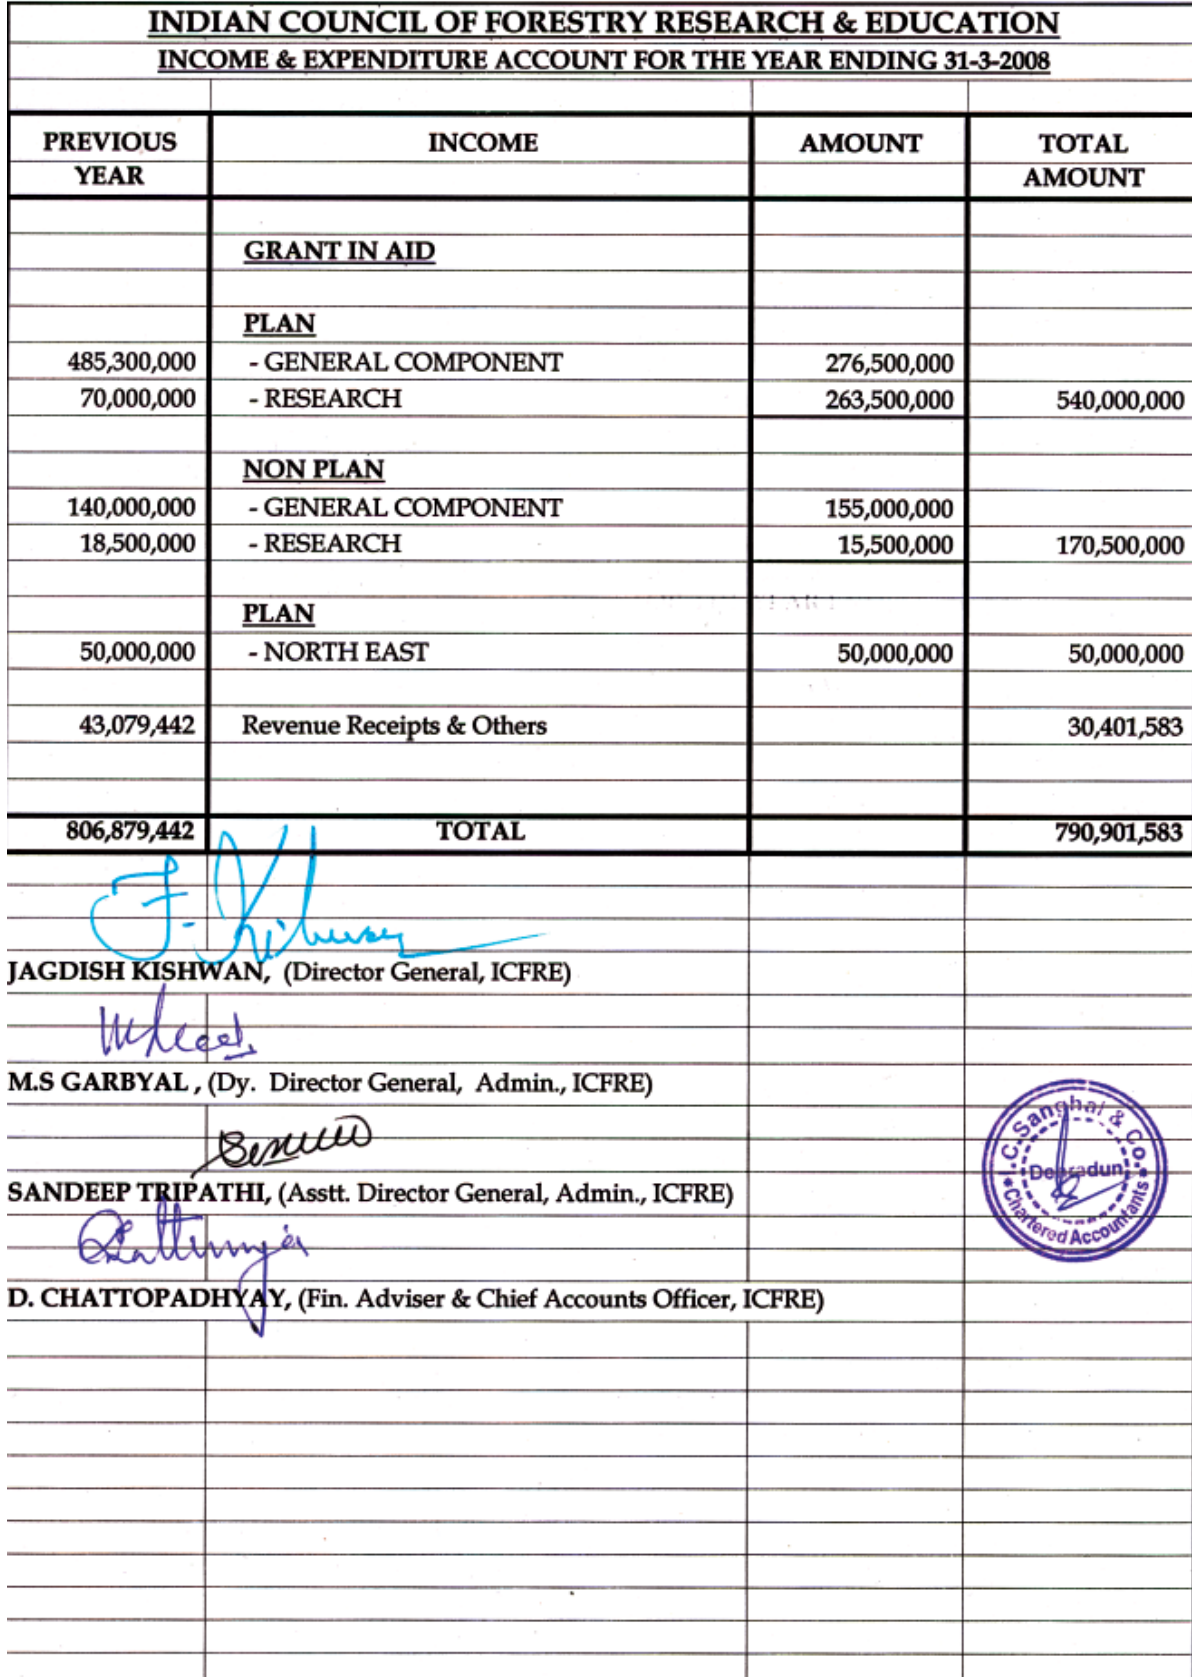 INDIAN COUNCIL OF FORESTRY RESEARCH & EDUCATION
INCOME & EXPENDITURE ACCOUNT FOR THE YEAR ENDING 31-3-2008
PREVIOUS INCOME AMOUNT TOTAL
YEAR AMOUNT
GRANT IN AID
PLAN
485,300,000 - GENERAL COMPONENT 276,500,000
70,000,000 - RESEARCH 263,500,000 540,000,000
NON PLAN
140,000,000 - GENERAL COMPONENT 155,000,000
18,500,000 - RESEARCH 15,500,000 170,500,000
PLAN
50,000,000 - NORTH EAST 50,000,000 50,000,000
43,079,442 Revenue Receipts & Others 30,401,583
806,879,442 TOTAL 790,901,583
JAGDISH KISHWAN, (Director General, ICFRE)
M.S GARBYAL , (Dy. Director General, Admin., ICFRE)
SANDEEP TRIPATHI, (Asstt. Director General, Admin., ICFRE)
D. CHATTOPADHYAY, (Fin. Adviser & Chief Accounts Officer, ICFRE)
Sanghal & Co.
Dehradun
Chartered Accountants